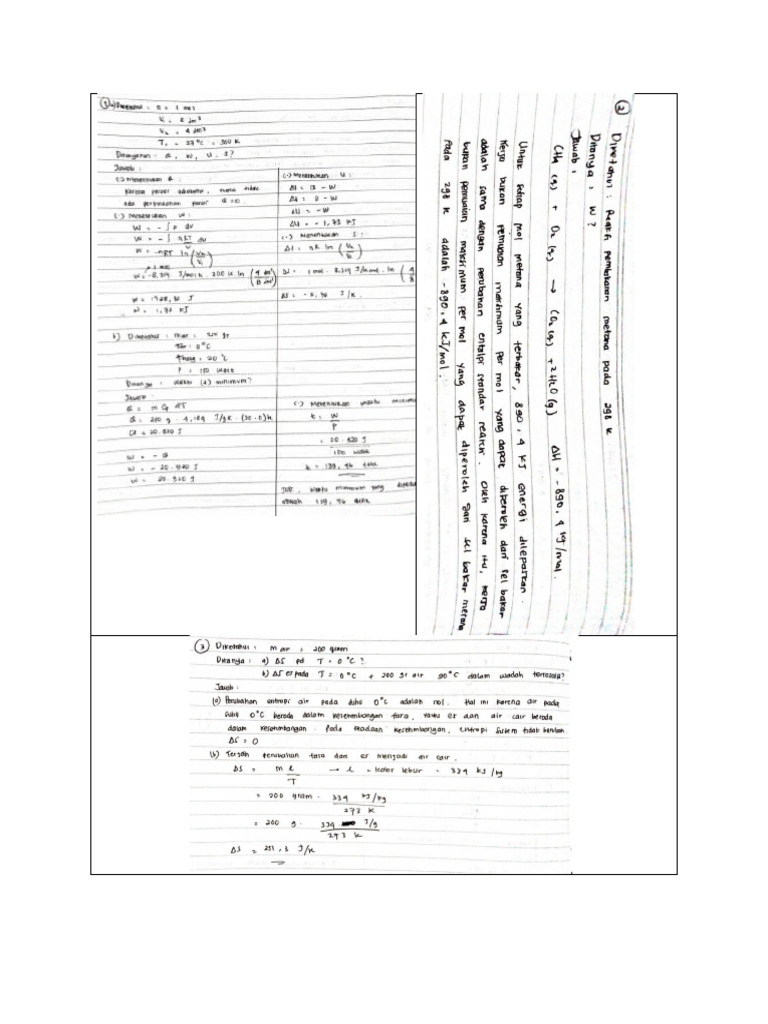 ① a) Diketahui : n = 1 mol
V₁ = 2 dm³
V₂ = 4 dm³
T₁ = 27°C = 300 K
Ditanyakan : Q, W, U, S?
Jawab :
(-) Menentukan Q :
Karena proses adiabatik, maka tidak
ada perpindahan panas Q = 0
(-) Menentukan W :
W = - ∫ P dv
W = - ∫ nRT/V dv
W = - nRT ln (V₂/V₁)
W = 1,73 kJ
(-) Menentukan U :
ΔU = Q - W
ΔU = 0 - W
ΔU = - W
ΔU = - 1,73 kJ
(-) Menentukan S :
b) Diketahui : mair = gr
Tair = 0°C
Takhir = 20°C
P = 150 watt
Ditanya : waktu (t) minimum?
Jawab :
Q = m Cp ΔT
Q = 20.920 J
W = - Q
W = - 20.920 J
W = 20.920 J
(-) Menentukan waktu minimum
t = W/P
= 20.920 J / 150 watt
t = 139,46 detik
Jadi, waktu minimum yang
adalah 139,46 detik
② Diketahui : Reaksi pembakaran metana pada 298 K
Ditanya : W?
Jawab :
CH₄ (g) + O₂ (g) → CO₂ (g) + 2H₂O (g) ΔH = -890,4 kJ/mol.
Untuk setiap mol metana yang terbakar, 890,4 kJ energi dilepaskan.
Kerja bukan pemuaian maksimum per mol yang dapat diperoleh dari sel bakar
adalah sama dengan perubahan entalpi standar reaksi. Oleh karena itu, kerja
bukan pemuaian maksimum per mol yang dapat diperoleh dari sel bakar metana
pada 298 K adalah -890,4 kJ/mol.
③ Diketahui : m air = 200 gram
Ditanya : a) ΔS pd T = 0°C ?
b) ΔS es pada T = 0°C + 200 gr air 90°C dalam wadah terisolasi?
Jawab :
(a) Perubahan entropi air pada suhu 0°C adalah nol. Hal ini karena air pada
suhu 0°C berada dalam kesetimbangan fasa, yaitu es dan air cair berada
dalam kesetimbangan. Pada keadaan kesetimbangan, entropi sistem tidak berubah
ΔS = 0
(b) Terjadi perubahan fasa dari es menjadi air cair.
ΔS = m L / T → L = kalor lebur = 334 kJ/kg
= 200 gram . 334 kJ/kg / 273 K
= 200 g . 334 J/g / 273 K
ΔS = 251,5 J/K